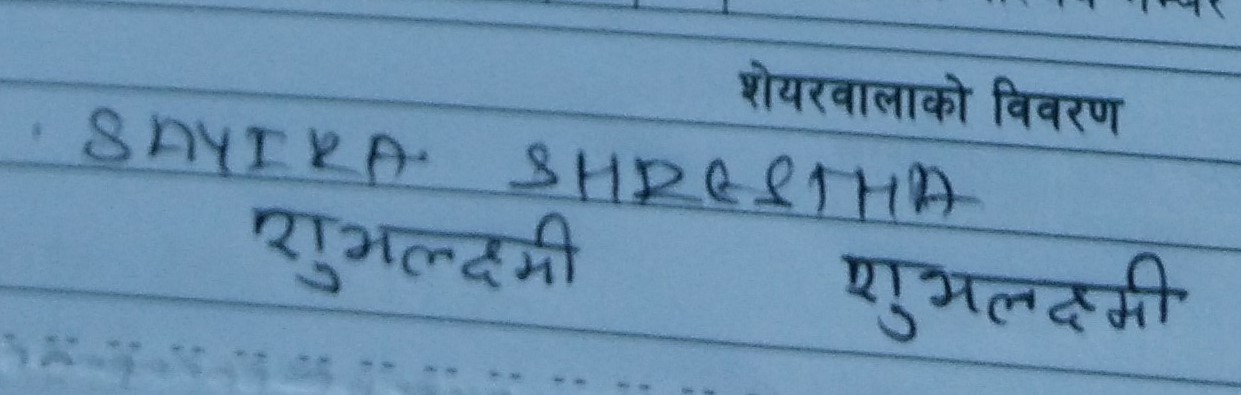 शेयरवालाको विवरण
SAYIRA SHRESTHA
शुभलक्ष्मी शुभलक्ष्मी